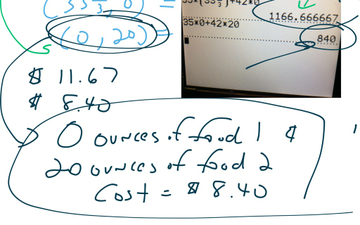 (33⅓, 0) =
35*(33⅓)+42*0
1166.666667
(0, 20) =
35*0+42*20
840
$ 11.67
$ 8.40
0 ounces of food 1 &
20 ounces of food 2
Cost = $ 8.40